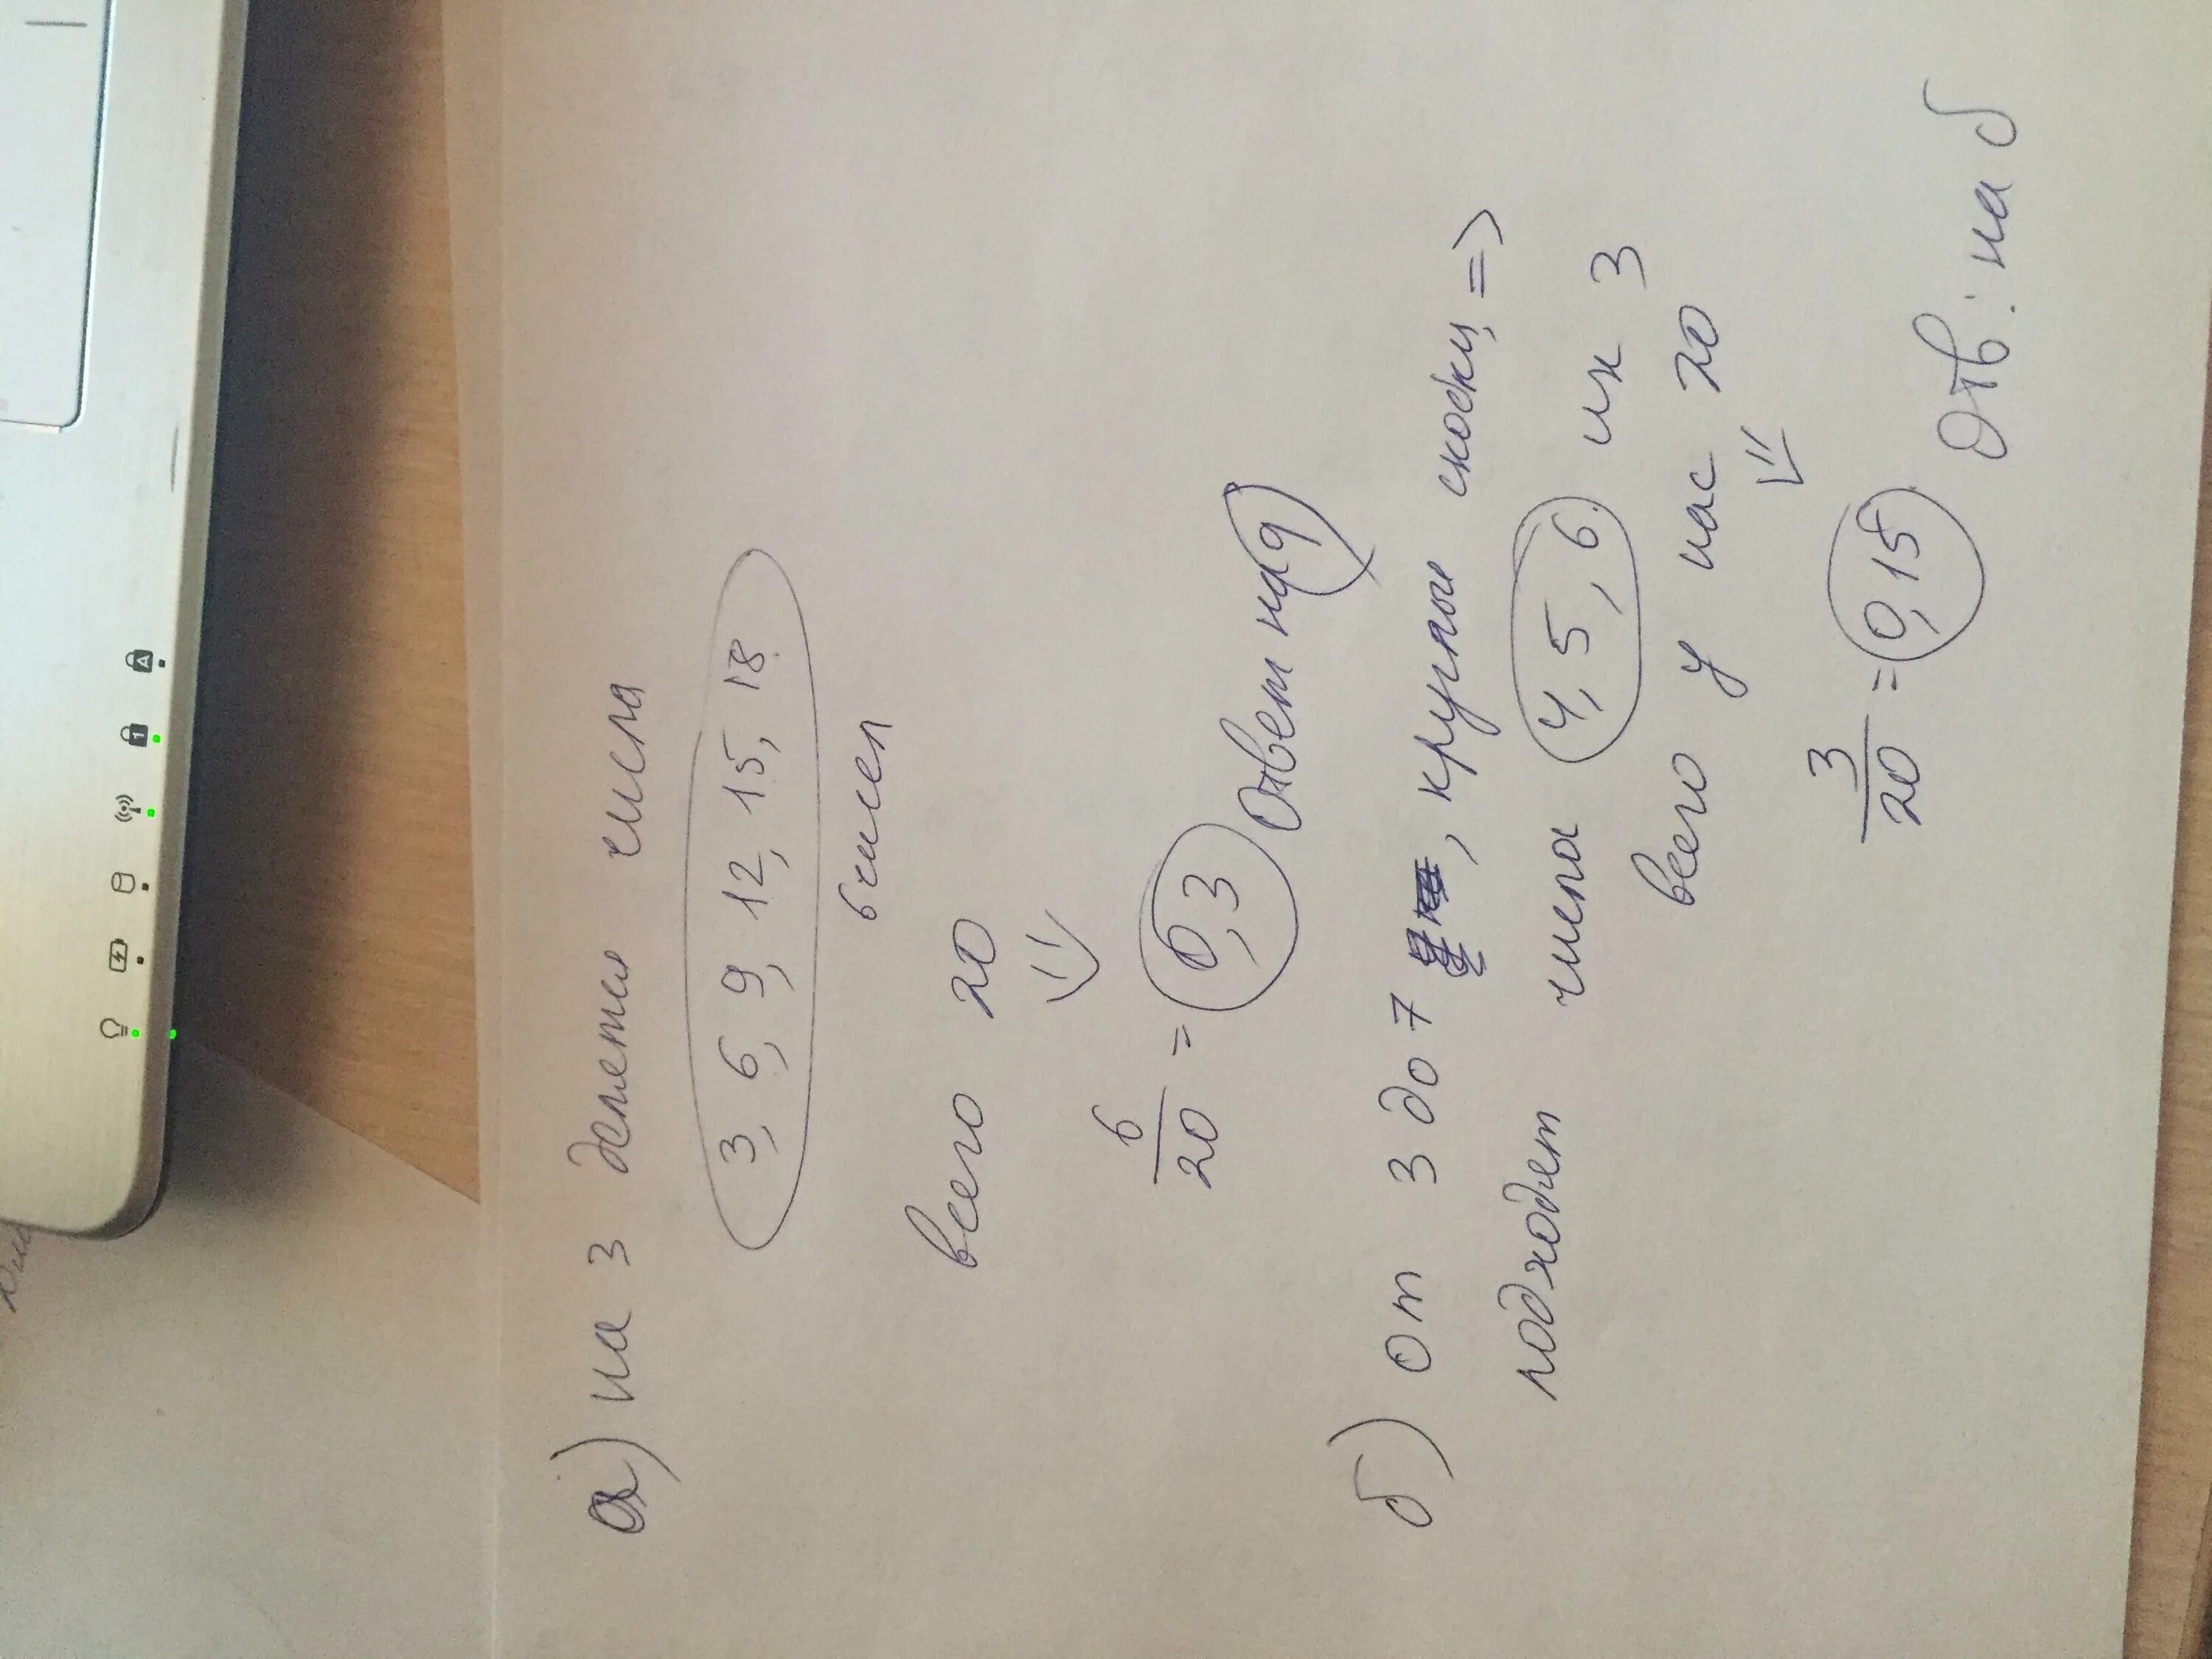 а) на 3 делятся числа
3, 6, 9, 12, 15, 18
6 чисел
всего 20
6/20 = 0,3 Ответ на а
б) от 3 до 7, круглые скобки, =>
подходят числа 4, 5, 6 их 3
всего у нас 20
3/20 = 0,15 Отв: на б